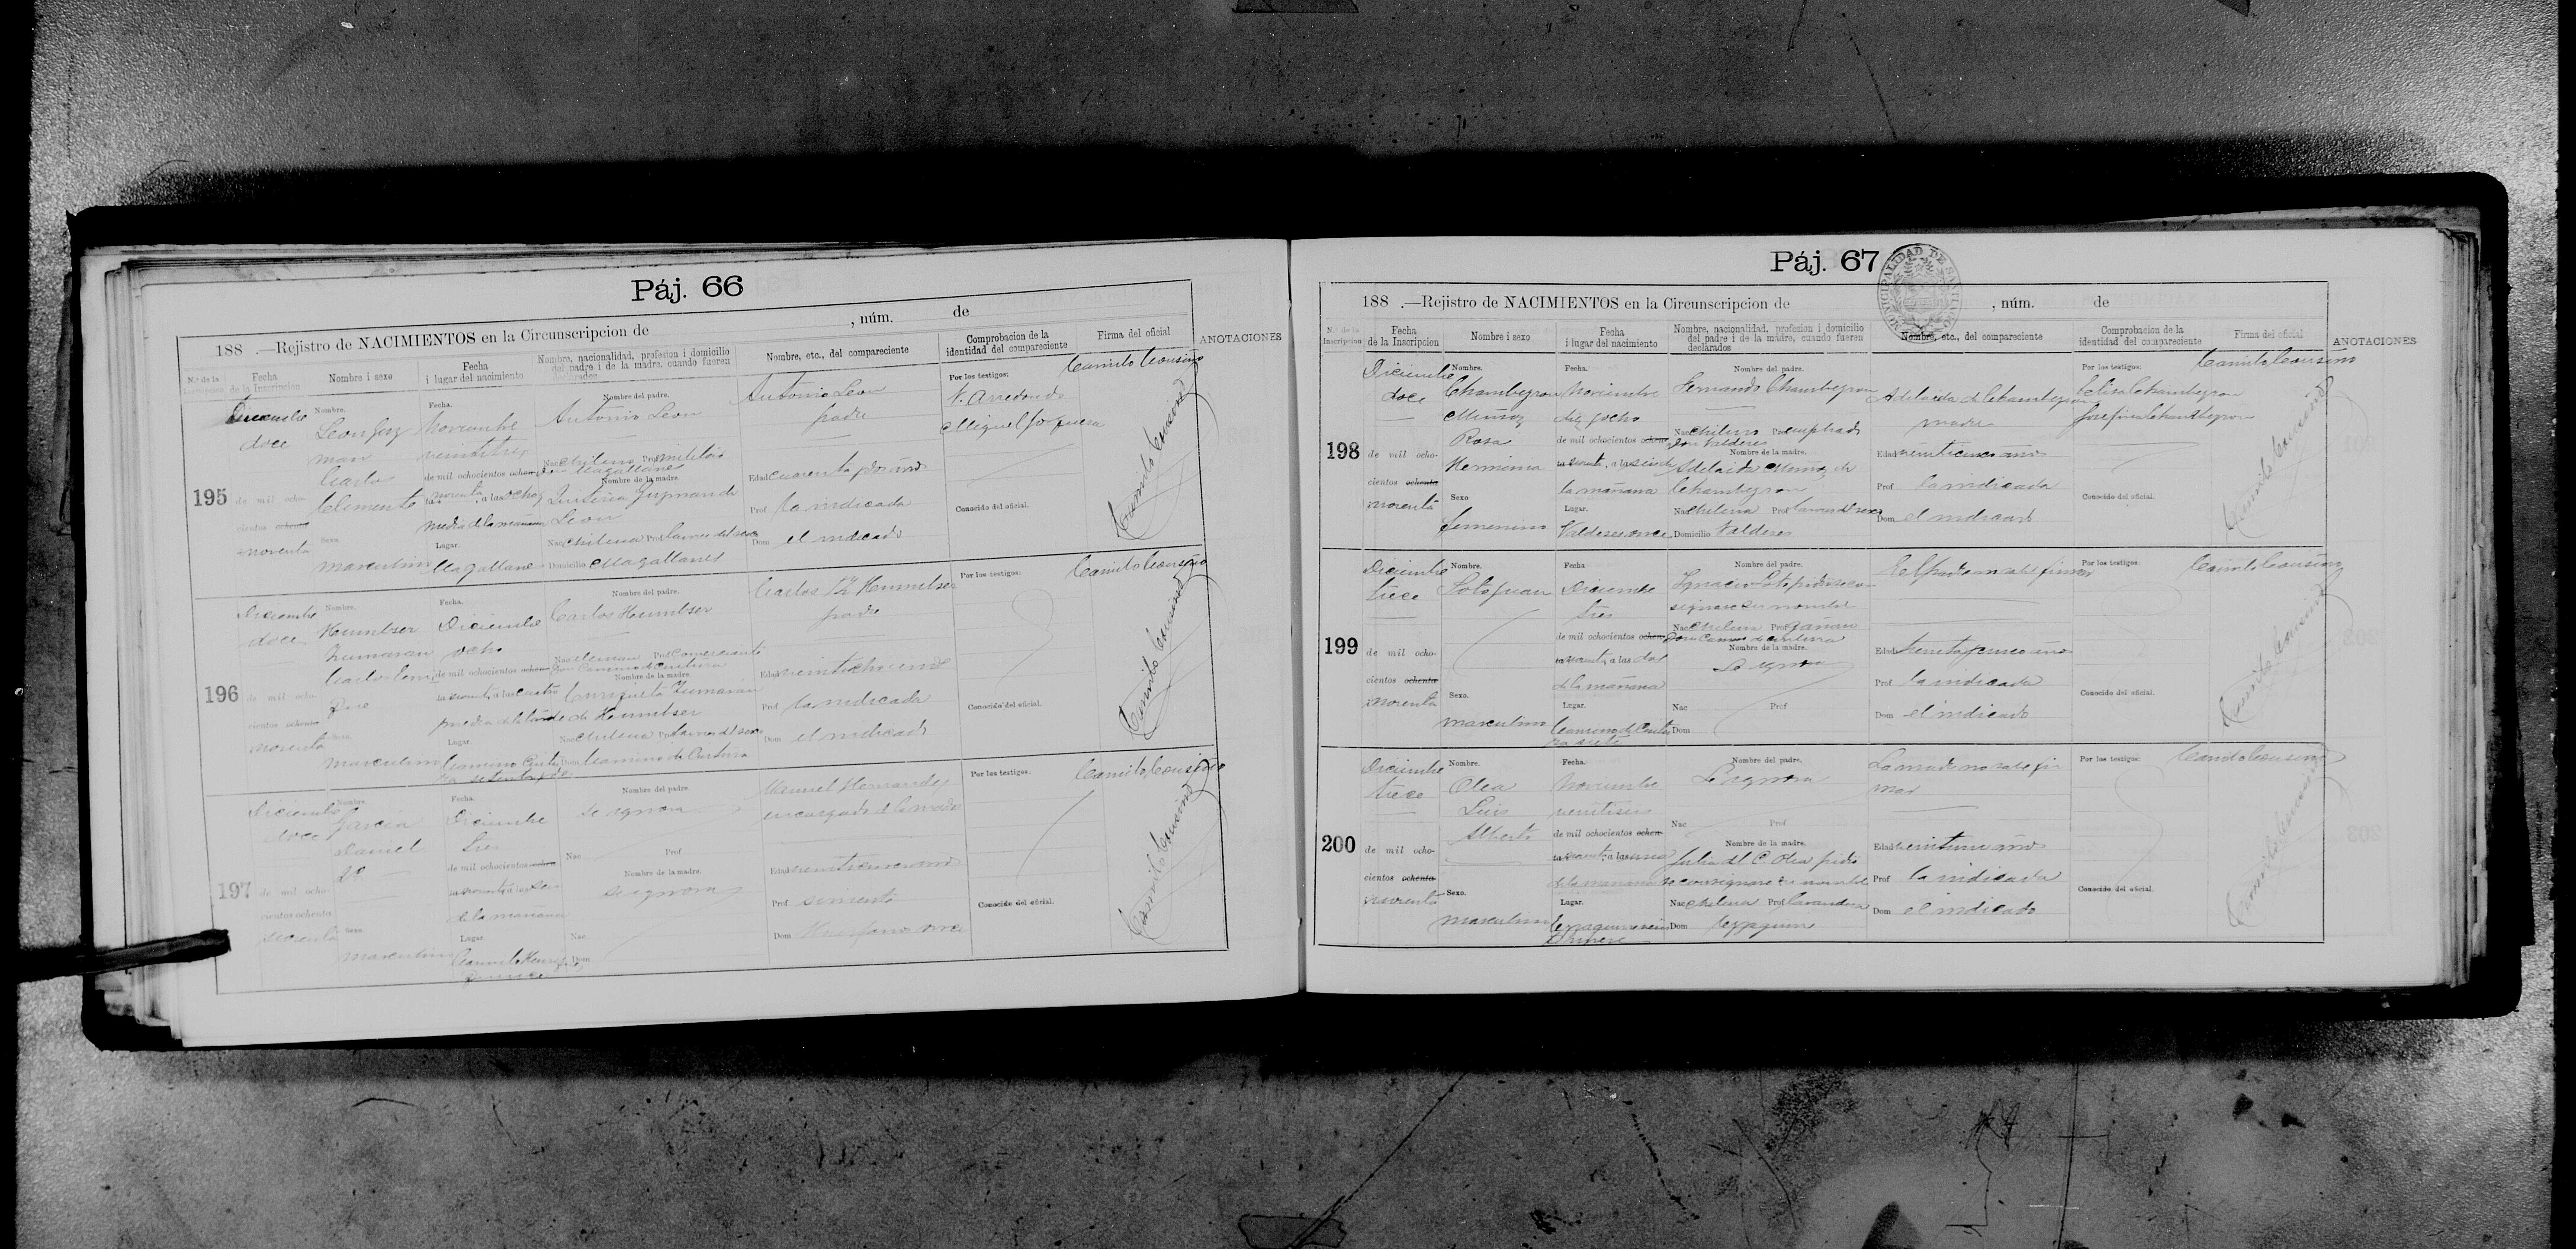 Páj. 66
188 .—Rejistro de NACIMIENTOS en la Circunscripcion de , núm. de
N.º de la Inscripcion
Fecha de la Inscripcion
Nombre i sexo
Fecha i lugar del nacimiento
Nombre, nacionalidad, profesion i domicilio del padre i de la madre, cuando fueren declarados
Nombre, etc., del compareciente
Comprobacion de la identidad del compareciente
Firma del oficial
ANOTACIONES
195
Diciembre
doce
de mil ocho-
cientos ochenta
noventa
Nombre.
Leon Guz
man
Carlos
Clemente
Sexo.
masculino
Fecha.
Noviembre
veintitres
de mil ochocientos ochen-
ta noventa, a las ocho y
media de la mañana
Lugar.
Magallanes
Nombre del padre.
Antonio Leon
Nac chileno Prof militar
Dom Magallanes
Nombre de la madre.
Guzman de
Leon
Nac chilena Prof labores del sexo
Domicilio Magallanes
Antonio Leon
padre
Edad cuarenta i dos años
Prof la indicada
Dom el indicado
Por los testigos:
N. Arredondo
Miguel Jorquera
Conocido del oficial.
Camilo Cousiño
Camilo Cousiño
196
Diciembre
doce
de mil ocho-
cientos ochenta
noventa
Nombre.
Zumaran
Carlos
Sexo.
masculino
Fecha.
Diciembre
ocho
de mil ochocientos ochen-
ta noventa, a las cuatro
i media de la tarde
Lugar.
Camino Cintu
ra
Nombre del padre.
Carlos
Nac aleman Prof comerciante
Dom Camino de Cintura
Nombre de la madre.
Enriqueta Zumaran
de
Nac chilena Prof labores del sexo
Dom Camino de Cintura
Carlos
padre
Edad veintiocho años
Prof la indicada
Dom el indicado
Por los testigos:
Conocido del oficial.
Camilo Cousiño
Camilo Cousiño
197
Diciembre
doce
de mil ocho-
cientos ochenta
noventa
Nombre.
Garcia
Daniel
2º
Sexo
masculino
Fecha.
Diciembre
tres
de mil ochocientos ochen
ta noventa, a las seis
de la mañana
Lugar.
Nombre del padre.
Se ignora
Nac Prof
Nombre de la madre.
Se ignora
Nac
Dom
Manuel Hernandez
encargado de la madre
Edad veinticinco años
Prof sirviente
Dom
Por los testigos.
Conocido del oficial.
Camilo Cousiño
Camilo Cousiño
Páj. 67
MUNICIPALIDAD DE SANTIAGO
188 .—Rejistro de NACIMIENTOS en la Circunscripcion de , núm. de
N.º de la Inscripcion
Fecha de la Inscripcion
Nombre i sexo
Fecha i lugar del nacimiento
Nombre, nacionalidad, profesion i domicilio del padre i de la madre, cuando fueren declarados
Nombre, etc., del compareciente
Comprobacion de la identidad del compareciente
Firma del oficial
ANOTACIONES
198
Diciembre
doce
de mil ocho-
cientos ochenta
noventa
Nombre.
Chambeyron
Muñoz
Rosa
Herminia
Sexo
femenino
Fecha.
Noviembre
diez i ocho
de mil ochocientos ochen
ta noventa, a las seis de
la mañana
Lugar.
Valdes once
Nombre del padre.
Fernando Chambeyron
Nac chileno Prof empleado
Dom Valdes
Nombre de la madre.
Adelaida Muñoz de
Chambeyron
Nac chilena Prof labores del sexo
Domicilio Valdes
Adelaida d. Chambeyron
madre
Edad veinticinco años
Prof la indicada
Dom el indicado
Por los testigos:
Elisa Chambeyron
Josefina Chambeyron
Conocido del oficial.
Camilo Cousiño
Camilo Cousiño
199
Diciembre
trece
de mil ocho-
cientos ochenta
noventa
Nombre.
Soto Juan
Sexo.
masculino
Fecha
Diciembre
tres
de mil ochocientos ochen-
ta noventa, a las dos
de la mañana
Lugar.
Camino de Cintu
ra siete
Nombre del padre.
Ignacio Soto pidió con
signase su nombre
Nac chileno Prof gañan
Dom Camino de Cintura
Nombre de la madre.
Se ignora
Nac Prof
Dom
El padre no sabe firmar
Edad treinta i cinco años
Prof la indicada
Dom el indicado
Por los testigos:
Conocido del oficial.
Camilo Cousiño
Camilo Cousiño
200
Diciembre
trece
de mil ocho-
cientos ochenta
noventa
Nombre.
Olea
Luis
Alberto
Sexo.
masculino
Fecha.
Noviembre
veintiseis
de mil ochocientos ochen-
ta noventa, a la una
de la mañana
Lugar.
Nombre del padre.
Se ignora
Nac Prof
Nombre de la madre.
Julia del C. Olea pidió
se consignase su nombre
Nac chilena Prof lavandera
Dom
La madre no sabe fir
mar
Edad veintiun años
Prof la indicada
Dom el indicado
Por los testigos:
Conocido del oficial.
Camilo Cousiño
Camilo Cousiño